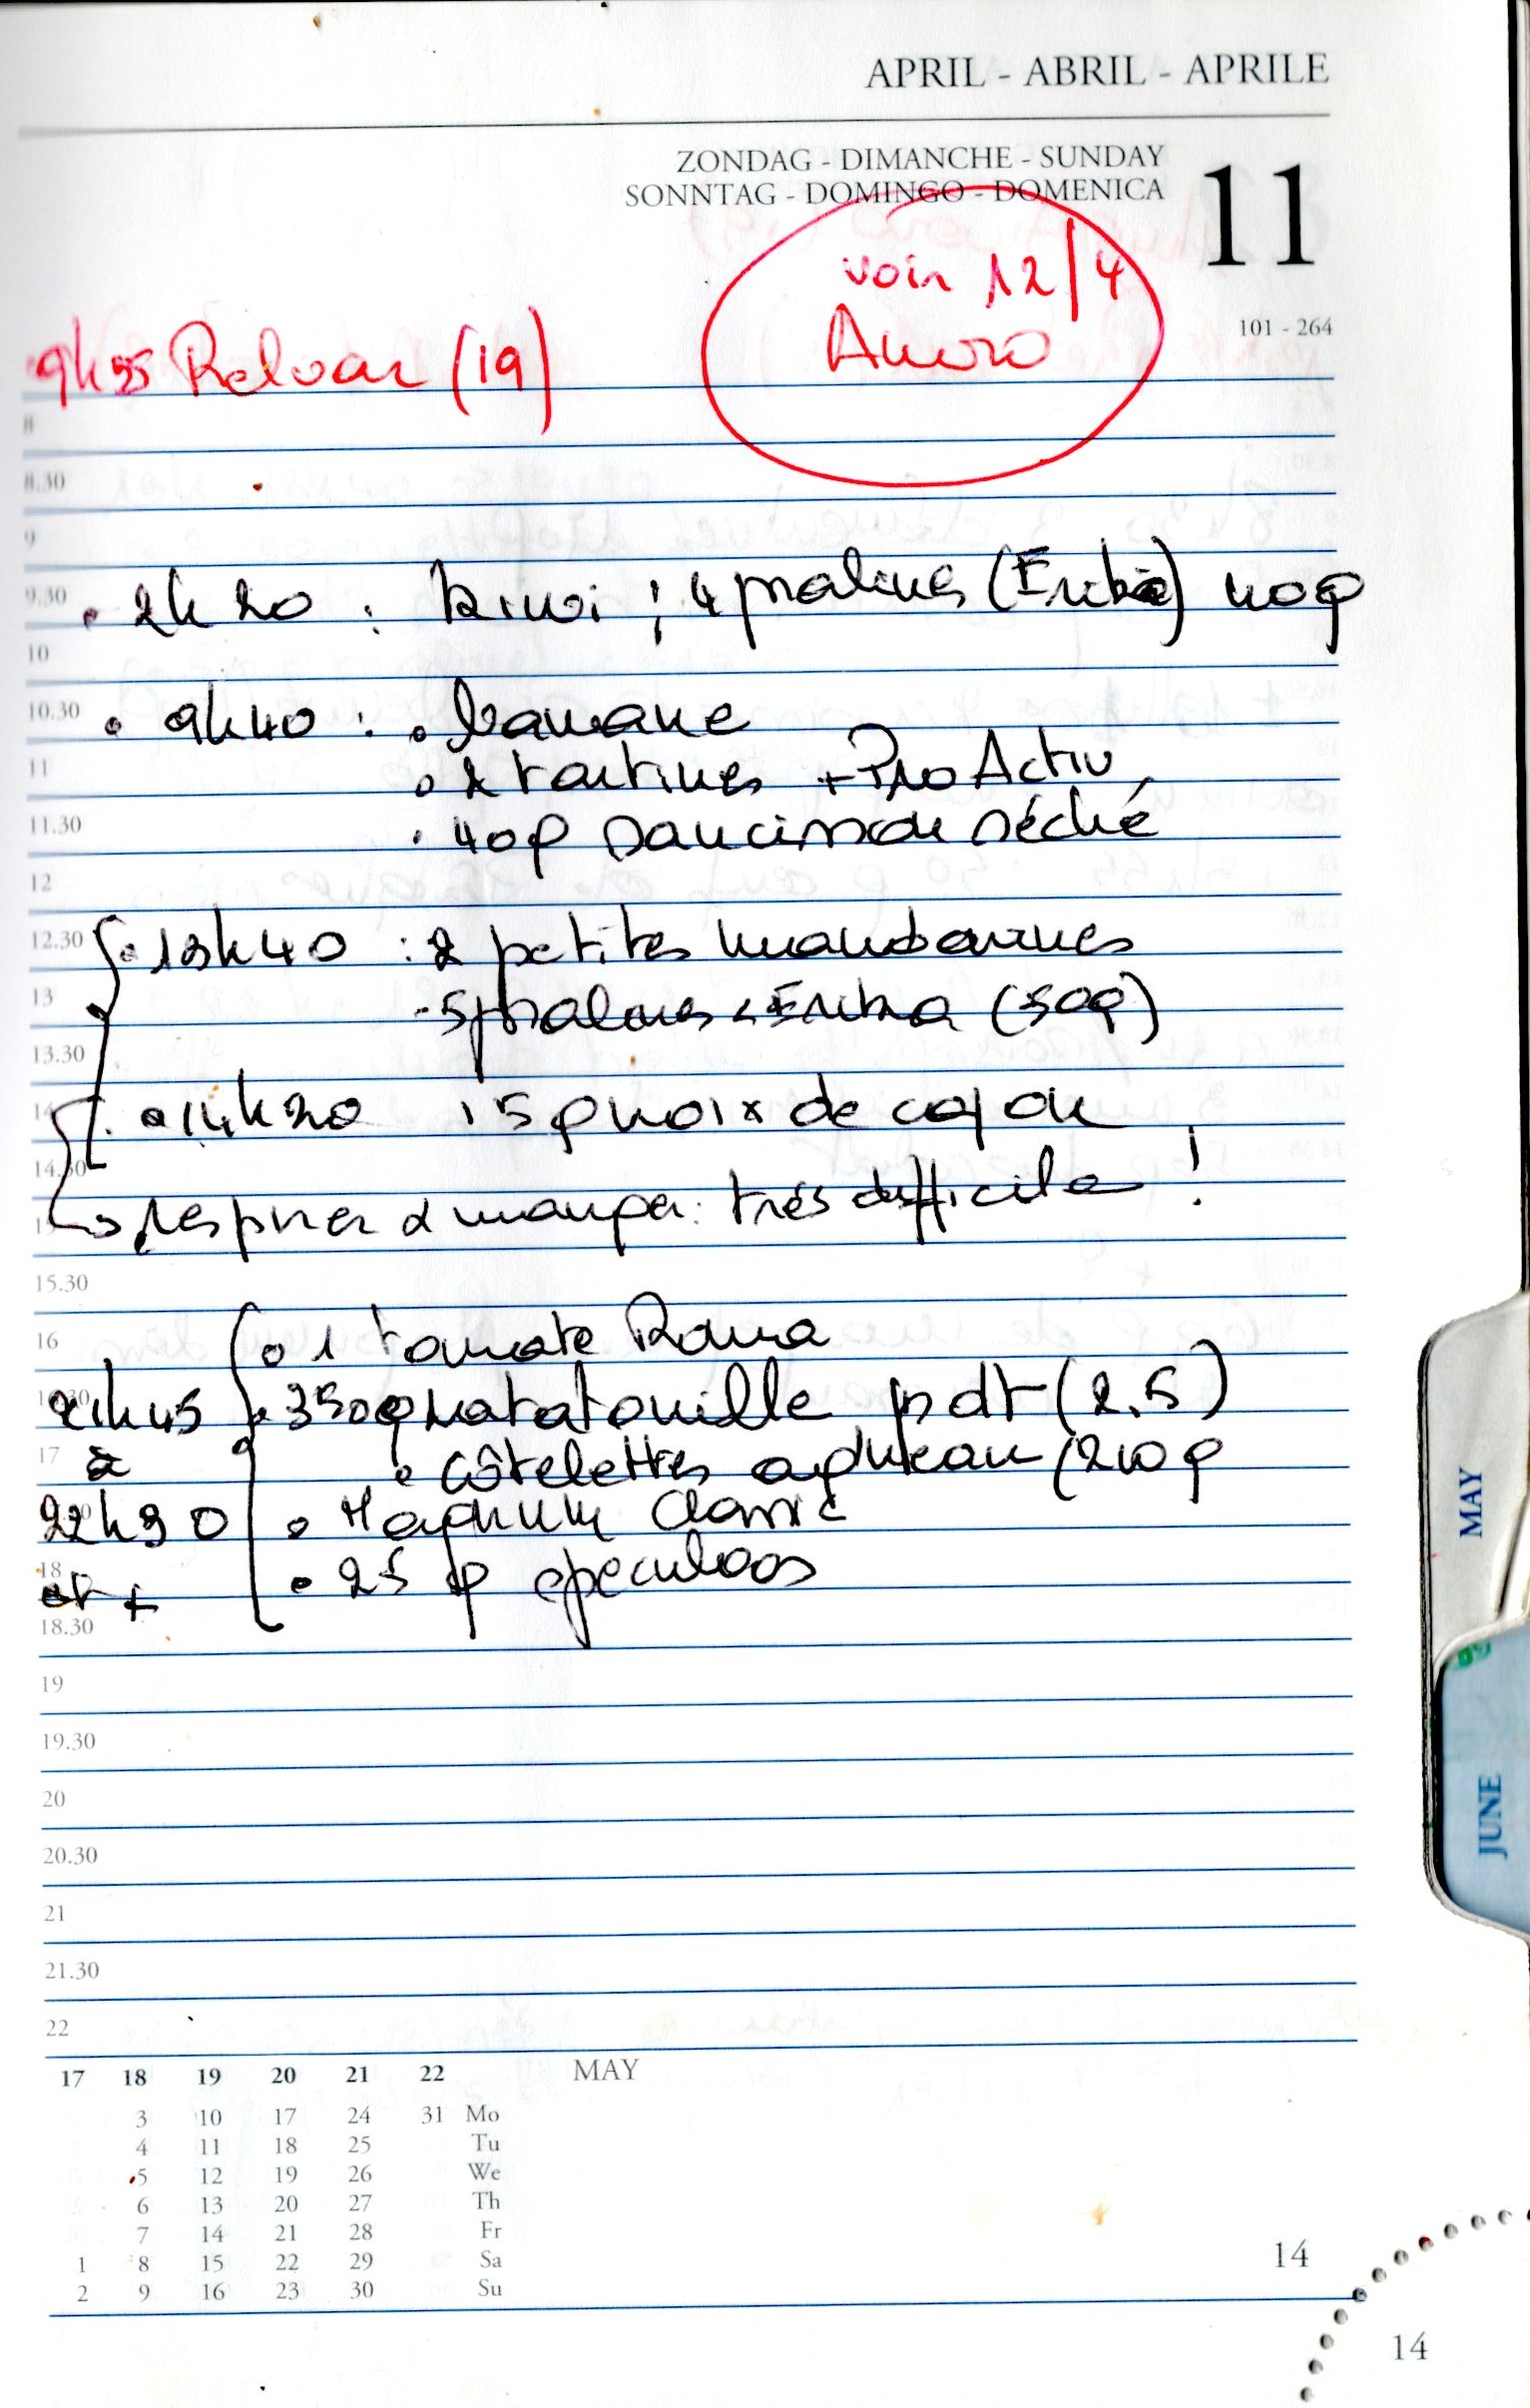 APRIL - ABRIL - APRILE
ZONDAG - DIMANCHE - SUNDAY
SONNTAG - DOMINGO - DOMENICA
11
101 - 264
voir 12/4
9h55 Relvar (19)
8
8.30
9
9.30 • 2h20 : kiwi ; 4 pralines 40g
10
10.30 • 9h40 : • banane
11 • 2 tartines + ProActiv
11.30 • 40g saucisson séché
12
12.30 • 13h40 : 2 petites mandarines
13 - 5 pralines (50g)
13.30
14 • 14h20 15g noix de cajou
14.30
respirer & manger : très difficile !
15.30
16 • 1 tomate Roma
21h45 • 350g ratatouille pdt (2,5)
17 à • côtelettes agneau (210g
22h30 • Magnum Classic
18 • 25 g speculoos
18.30
19
19.30
20
20.30
21
21.30
22
17 18 19 20 21 22 MAY
3 10 17 24 31 Mo
4 11 18 25 Tu
5 12 19 26 We
6 13 20 27 Th
7 14 21 28 Fr
1 8 15 22 29 Sa
2 9 16 23 30 Su
14
14
MAY
JUNE